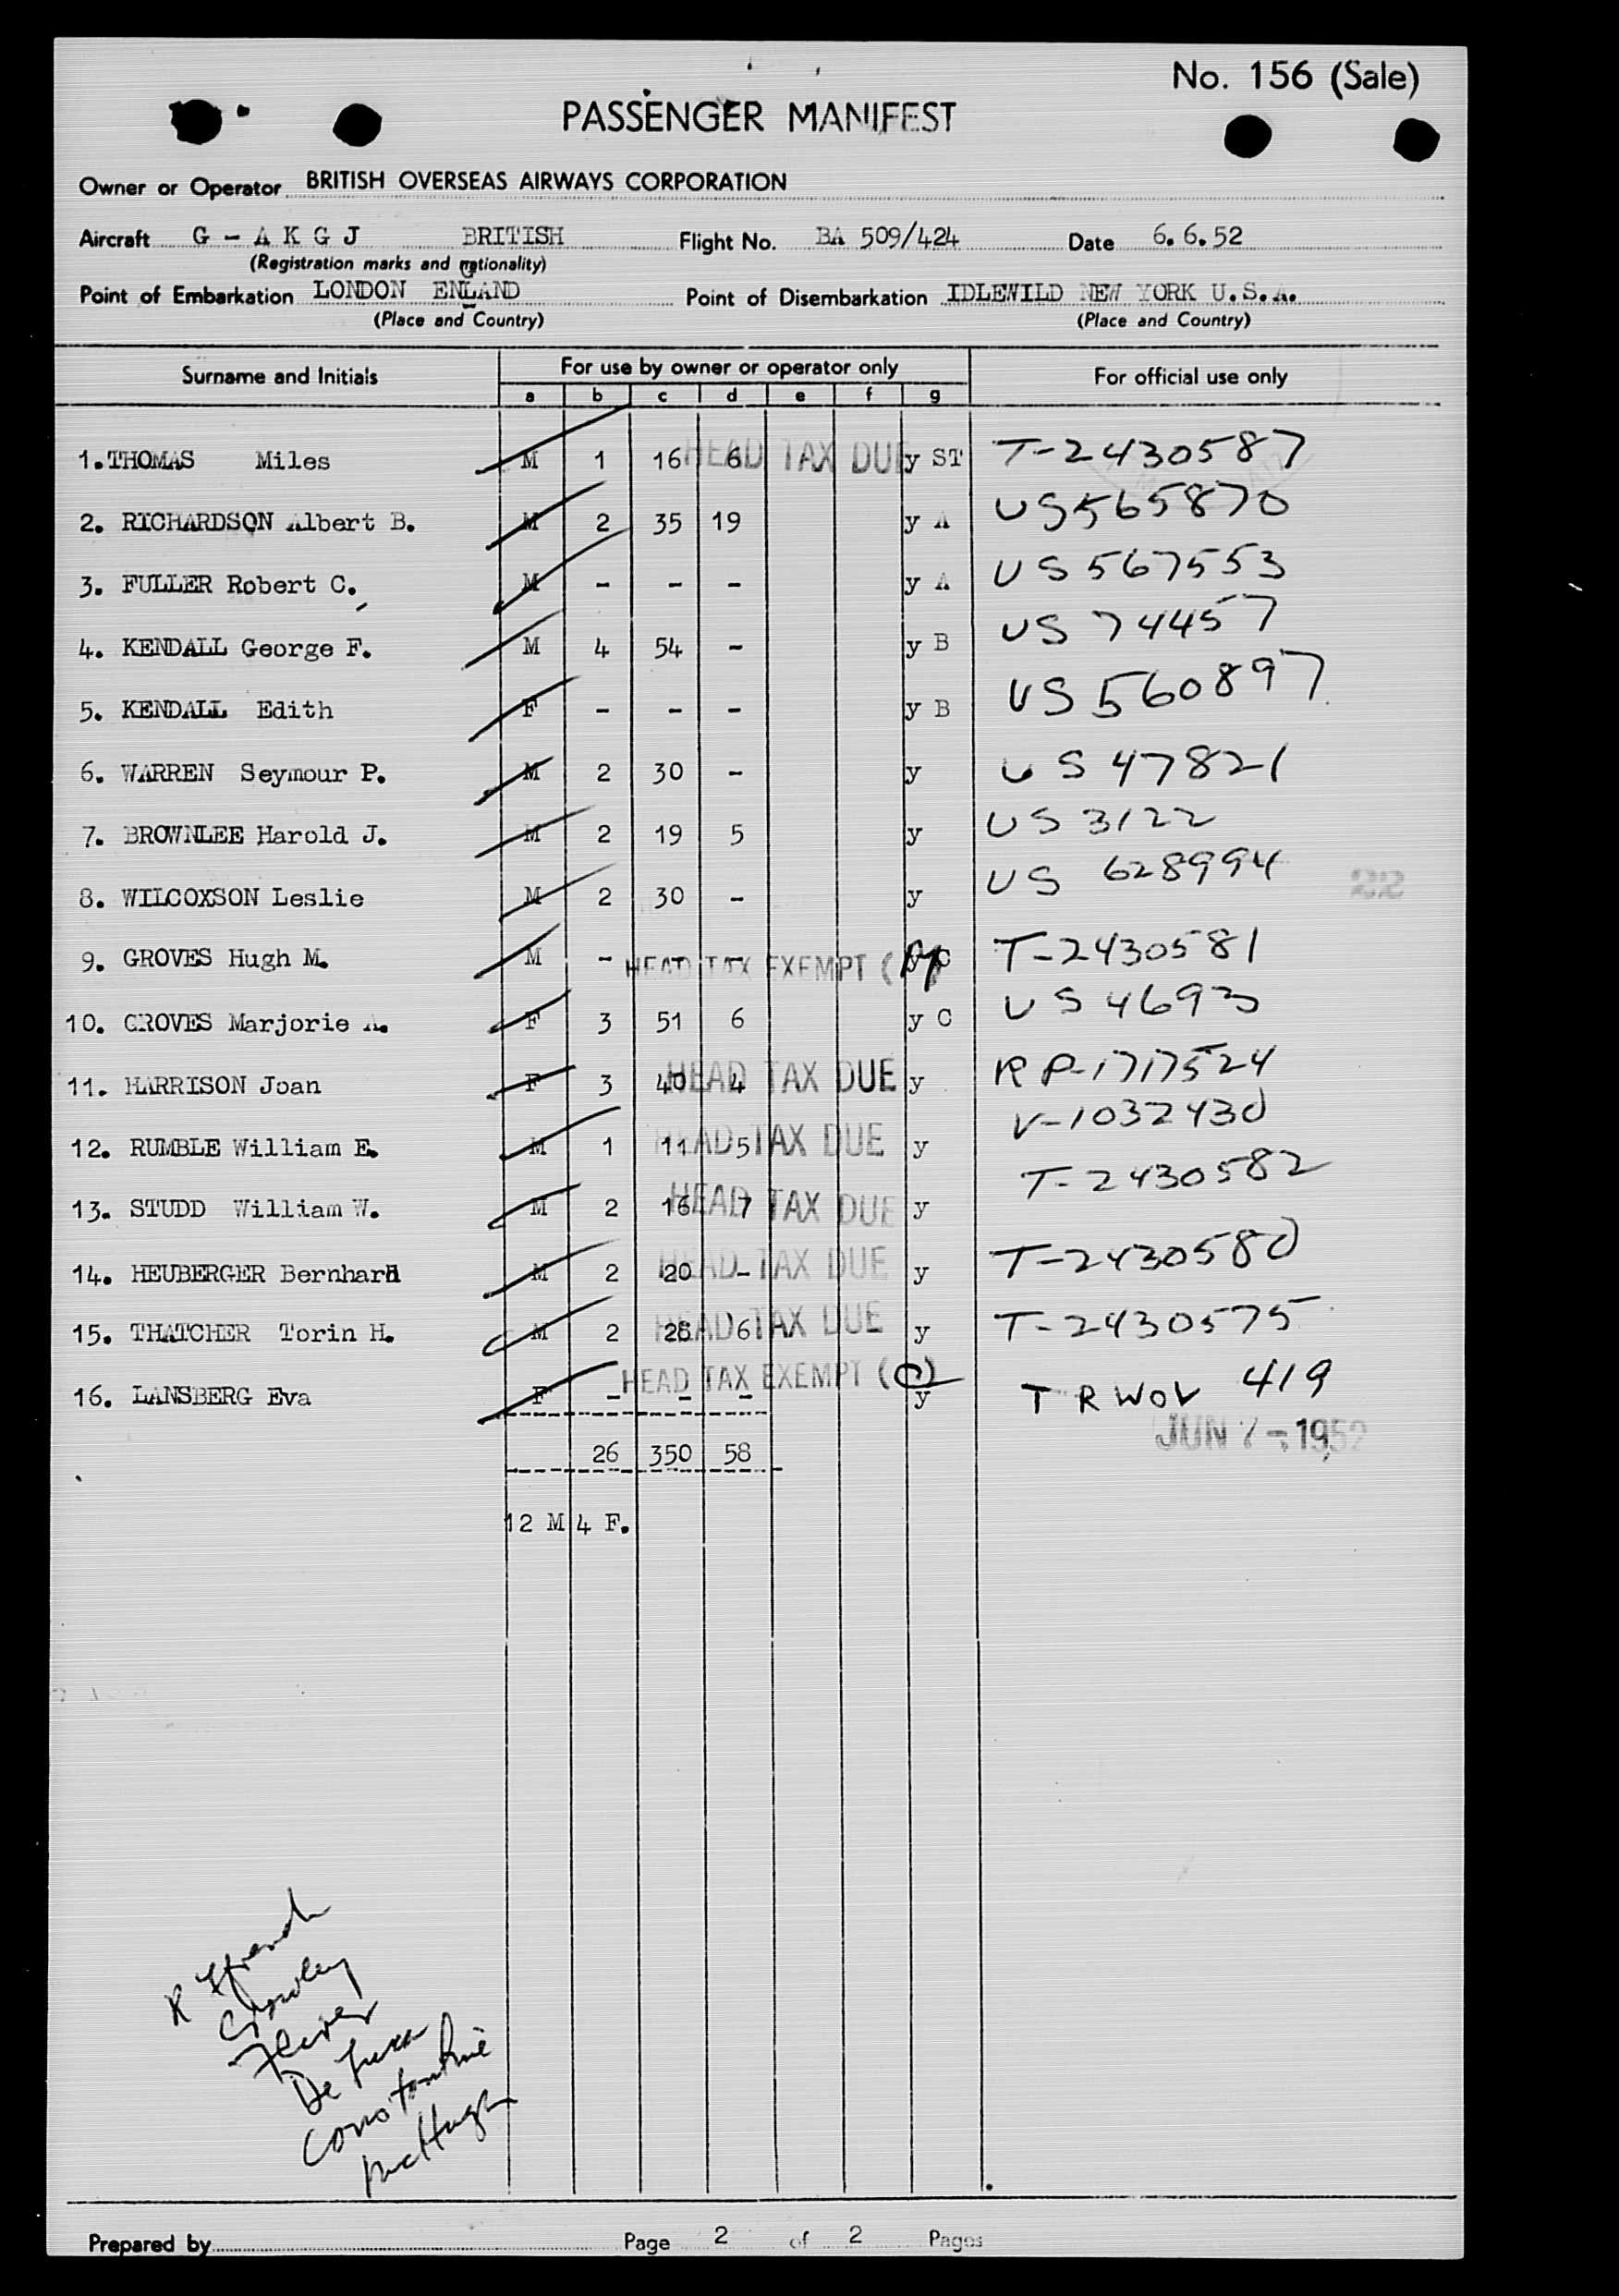 No. 156 (Sale)
PASSENGER MANIFEST
Owner or Operator BRITISH OVERSEAS AIRWAYS CORPORATION
Aircraft G - A K G J BRITISH Flight No. BA 509/424 Date 6.6.52
(Registration marks and nationality)
Point of Embarkation LONDON ENLAND Point of Disembarkation IDLEWILD NEW YORK U.S.A.
(Place and Country) (Place and Country)
Surname and Initials For use by owner or operator only For official use only
a b c d e f g
1. THOMAS Miles M 1 16 6 HEAD TAX DUE y ST T-2430587
2. RICHARDSON Albert B. M 2 35 19 y A US565870
3. FULLER Robert C. M - - - y A US 567553
4. KENDALL George F. M 4 54 - y B US 74457
5. KENDALL Edith F - - - y B US 560897
6. WARREN Seymour P. M 2 30 - y US 47821
7. BROWNLEE Harold J. M 2 19 5 y US 3122
8. WILCOXSON Leslie M 2 30 - y US 628994
9. GROVES Hugh M. M - - - HEAD TAX EXEMPT ( y C T-2430581
10. GROVES Marjorie A. F 3 51 6 y C US 4693
11. HARRISON Joan F 3 40 4 HEAD TAX DUE y RP-1717524
12. RUMBLE William E. M 1 11 5 HEAD TAX DUE y V-1032430
13. STUDD William W. M 2 16 7 HEAD TAX DUE y T-2430582
14. HEUBERGER Bernhard M 2 20 - HEAD TAX DUE y T-2430580
15. THATCHER Torin H. M 2 28 6 HEAD TAX DUE y T-2430575
16. LANSBERG Eva F - - - HEAD TAX EXEMPT (C) y T R WOV 419
JUN 7 - 1952
26 350 58
12 M 4 F.
De Luca
Constantine
McHugh
Prepared by Page 2 of 2 Pages